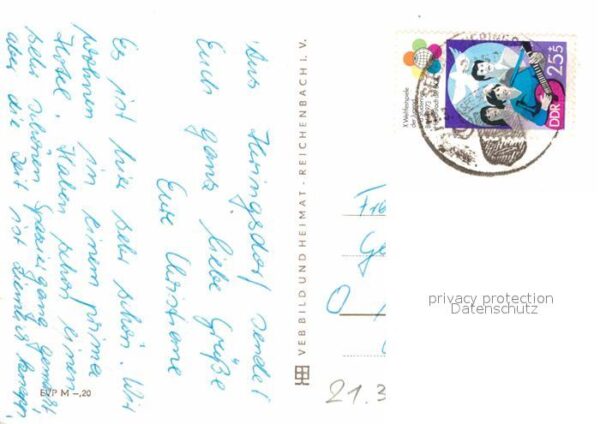 Aus Heringsdorf sendet
Euch ganz liebe Grüße
Eure Christiane
Es ist hier sehr schön. Wir
wohnen in einem prima
Hotel. Haben schon einen
sehr schönen Spaziergang gemacht,
aber die Zeit ist ziemlich knapp.
EVP M –,20
VEB BILD UND HEIMAT · REICHENBACH I. V.
X. Weltfestspiele
der Jugend
DDR
25+5
HERINGS
Fa
Ge
O
21.3
privacy protection
Datenschutz